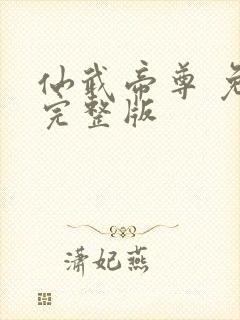 仙武帝尊 免
完整版
潇妃燕